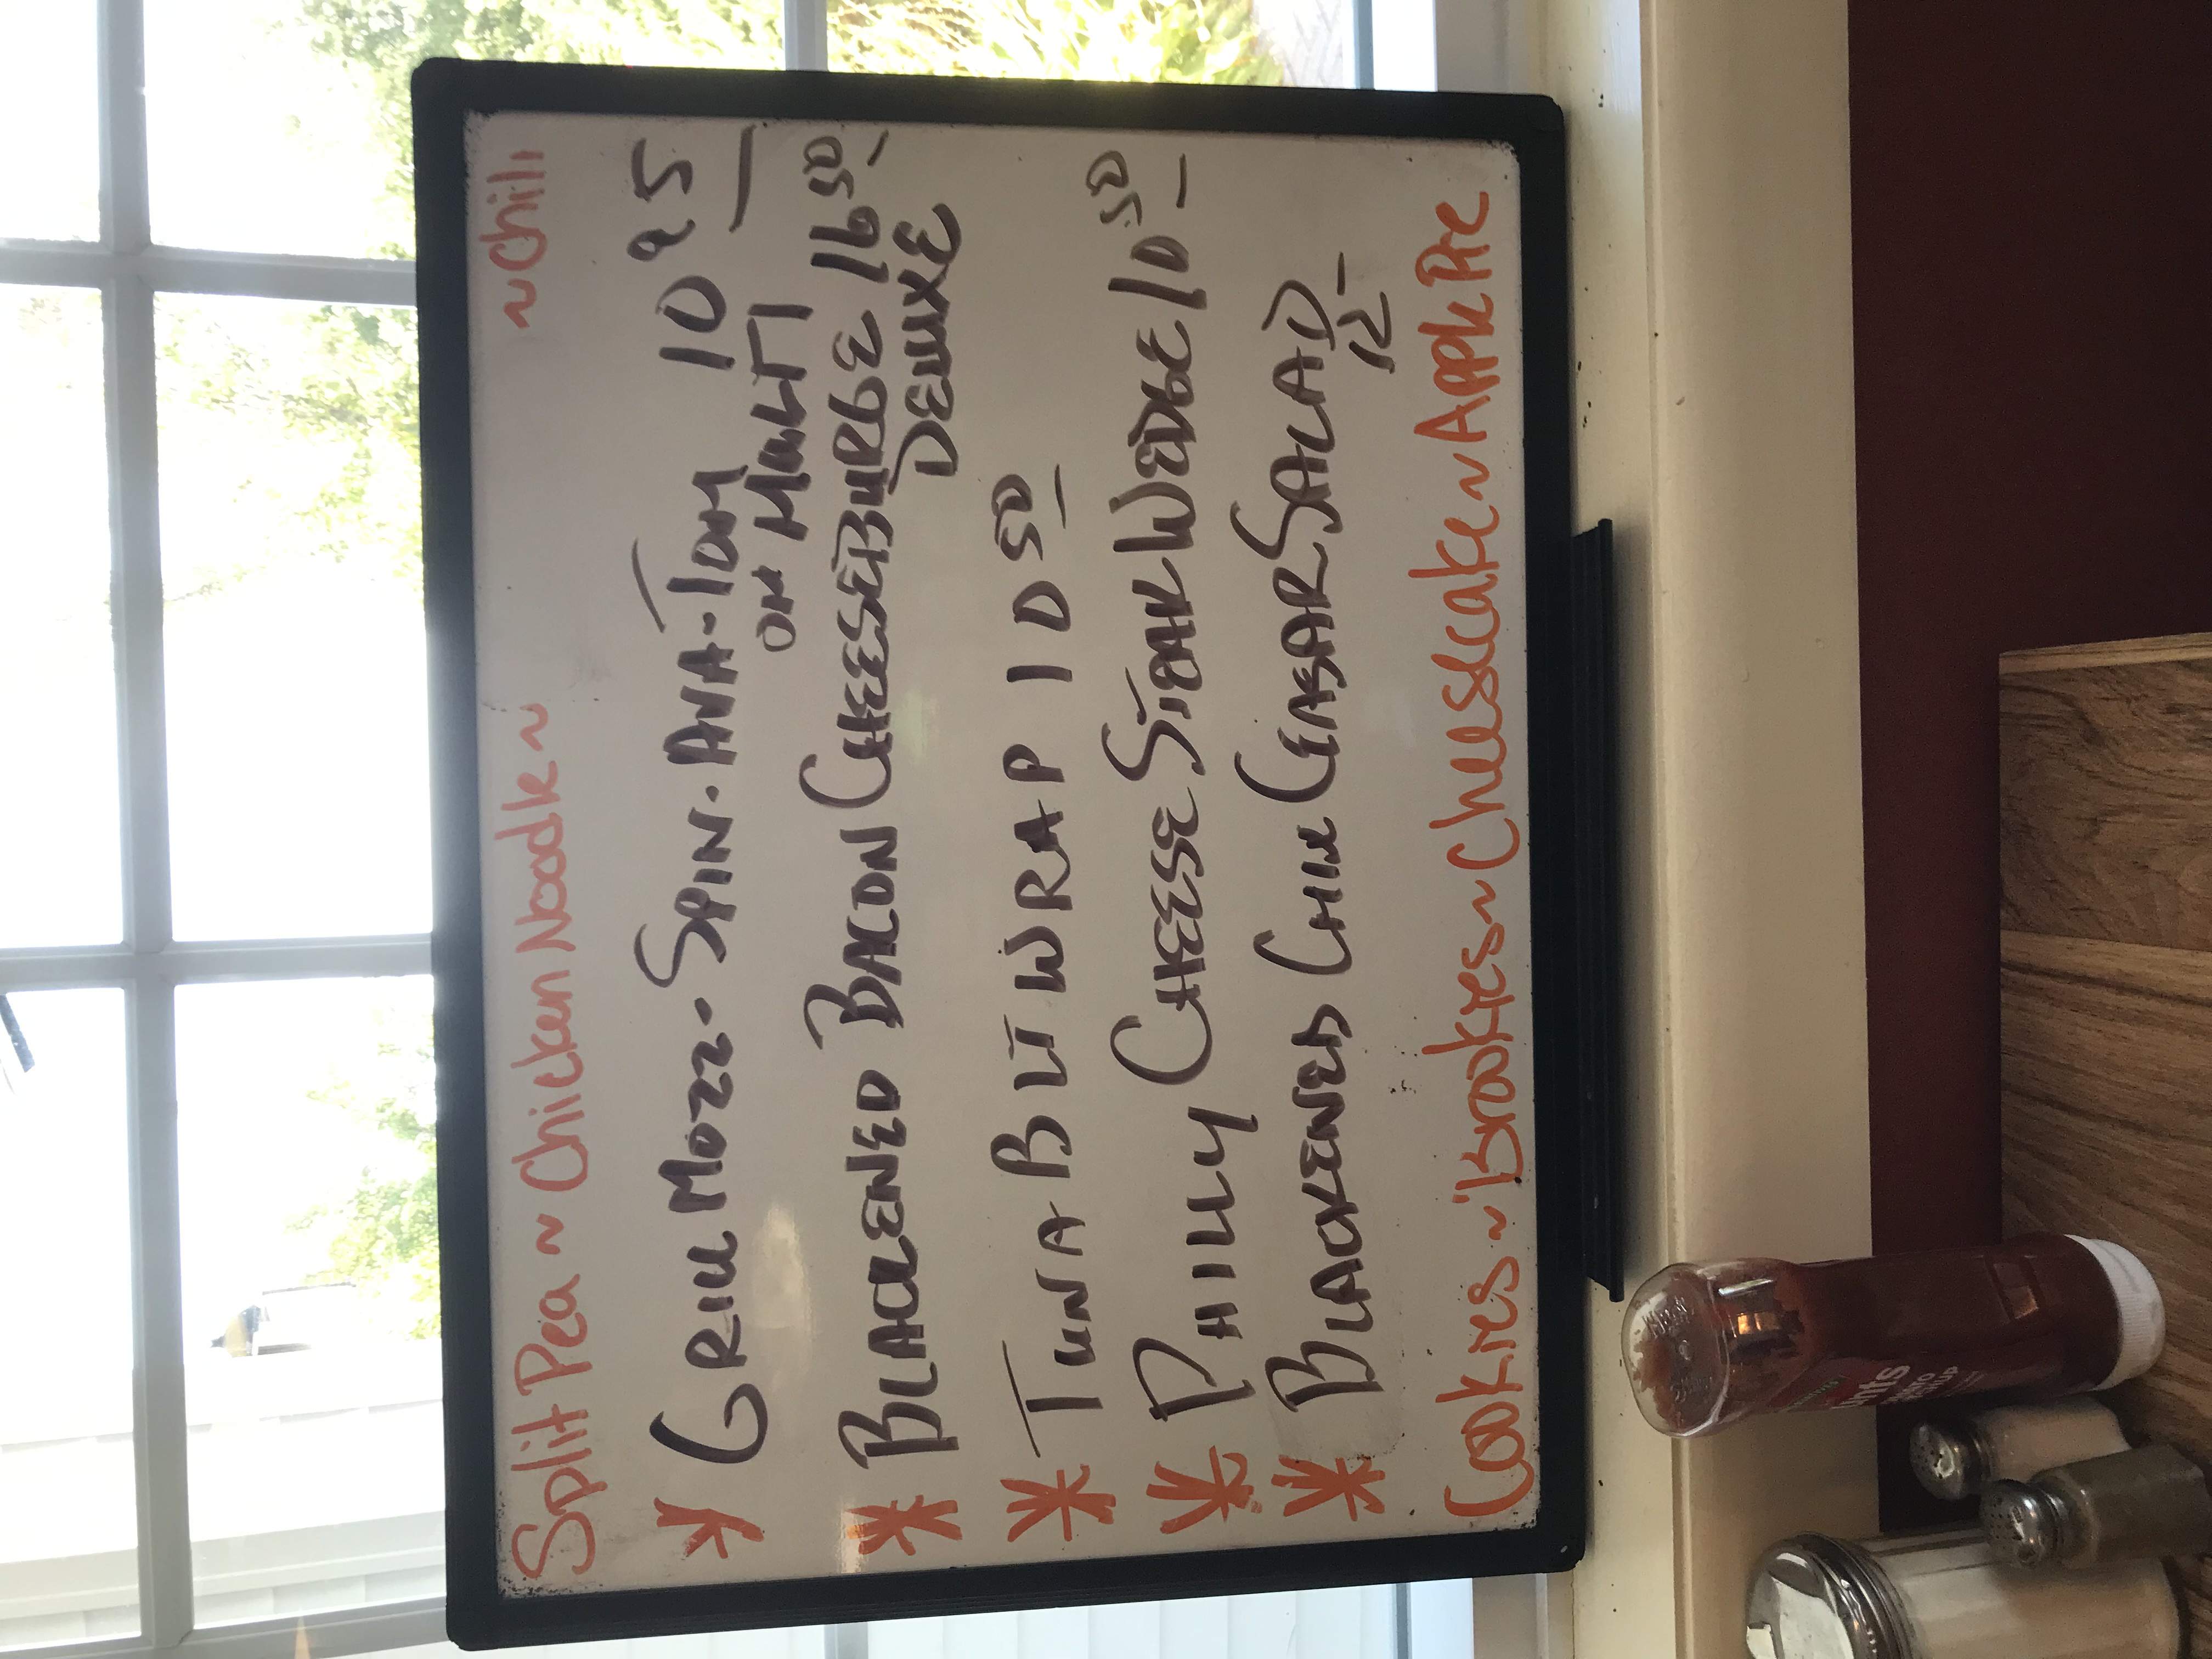 Split Pea ~ Chicken Noodle ~ ~ Chili
GRILL MOZZ - SPIN - AVA - TOM 10 95
ON MULTI
* BLACKENED BACON CHEESEBURGE 16 50
DELUXE
* TUNA BLT WRAP 10 50
* PHILLY CHEESE STEAK WEDGE 10 50
* BLACKENED CHIK CEASAR SALAD
12 -
Cookies ~ Brookies ~ Cheesecake ~ Apple Pie